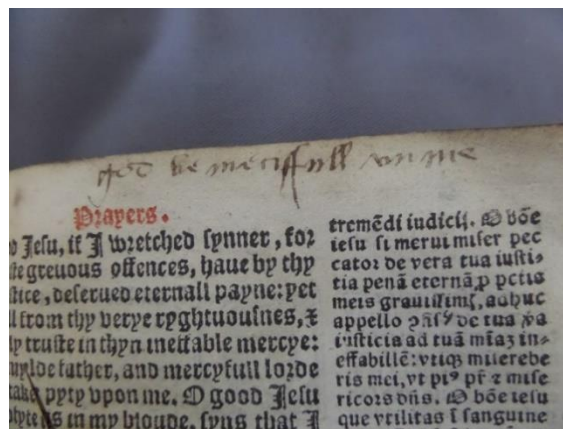 god be meciffull vn me
Prayers.
Jesu, if I wretched synner, for
greuous offences, haue by thy
deserued eternall payne: yet
from thy verye ryghtuousnes, &
truste in thyn ineffable mercye:
mylde father, and mercyfull lorde
take pyty vpon me. O good Jesu
in my bloude, syns that I
tremēdi iudicij. O bōe
iesu si merui miser pec
cator de vera tua iusti-
tia penā eternā, ꝓ pctis
meis grauissimꝭ, adhuc
appello de tua
iusticia ad tuā mīaꝫ in-
effabilē: vtiqꝫ miserebe
ris mei, vt piꝰ pr̄ & mise
ricors dn̄s. O bōe iesu
que vtilitas ī sanguine